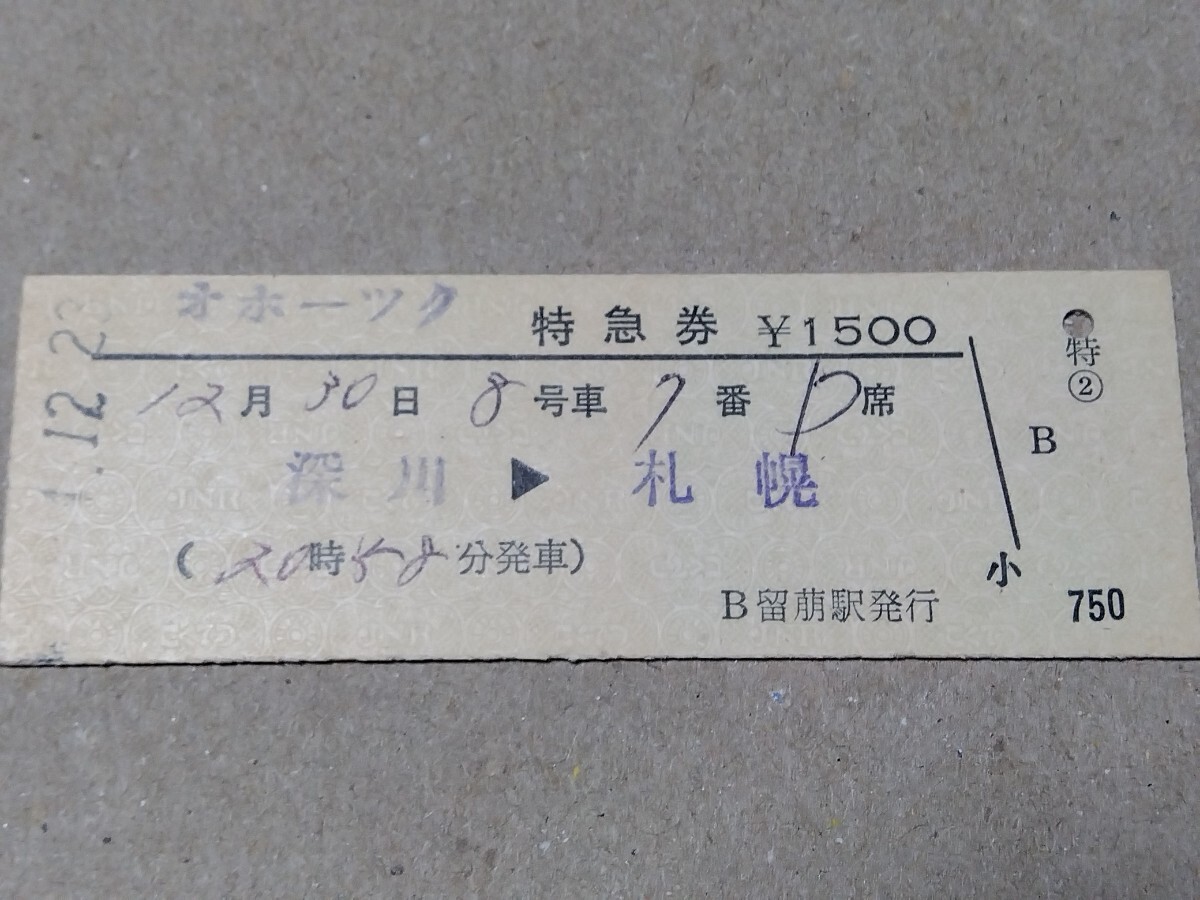 オホーツク
特急券 ¥1500
12月30日 8号車 7番 D席
深川 ▶ 札幌
(20時58分発車)
B留萠駅発行
.12.2
特
②
B
小
750